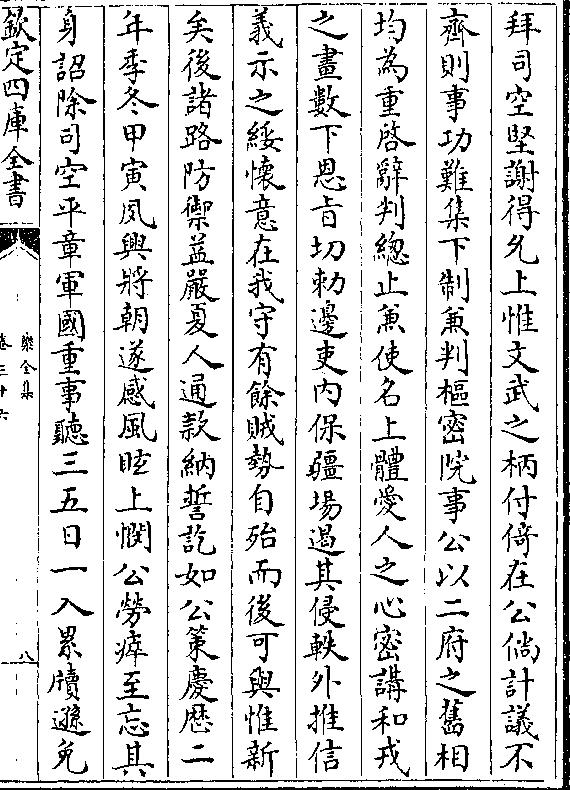 拜司空堅謝得允上惟文武之柄付倚在公倘計議不
齊則事功難集下制兼判樞密院事公以二府之舊相
均為重啓辭判總止兼使名上體愛人之心密講和戎
之畫數下恩旨切勅邊吏内保疆場遏其侵軼外推信
義示之綏懷意在我守有餘賊勢自殆而後可與惟新
矣後諸路防禦益嚴夏人通款納誓訖如公策慶歴二
年季冬甲寅夙興將朝遂感風眩上憫公勞瘁至忘其
身詔除司空平章軍國重事聽三五日一入累牘遜免
欽定四庫全書
樂全集
卷三十六
八